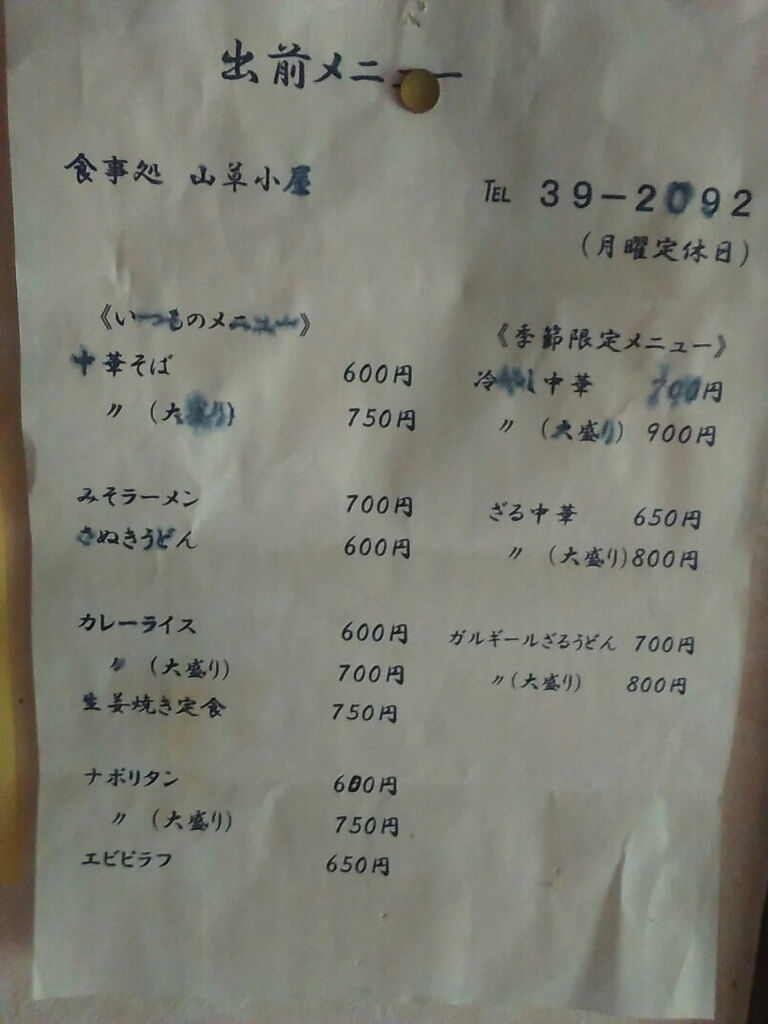 出前メニュー
食事処 山草小屋
TEL 39-2092
(月曜定休日)
《いつものメニュー》
中華そば 600円
〃 (大盛り) 750円
みそラーメン 700円
さぬきうどん 600円
カレーライス 600円
〃 (大盛り) 700円
生姜焼き定食 750円
ナポリタン 600円
〃 (大盛り) 750円
エビピラフ 650円
《季節限定メニュー》
冷やし中華 700円
〃 (大盛り) 900円
ざる中華 650円
〃 (大盛り) 800円
ガルギールざるうどん 700円
〃 (大盛り) 800円